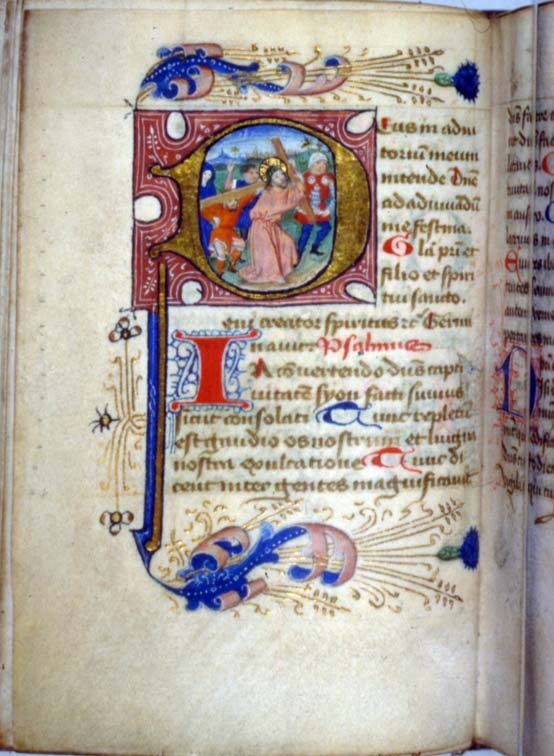 Deus in adiu
toriū meum
intende Dñe
ad adiuuandū
me festina.
Glā pri et
filio et spiri
tui sancto.
eni creator spiritus Germi
nauit Psalmus
In cōuertendo dñs capti
uitatē syon facti sumus
sicut consolati Tunc repletū
est gaudio os nostrum et lingua
nostra exultatione Tunc di
cent inter gentes magnificauit